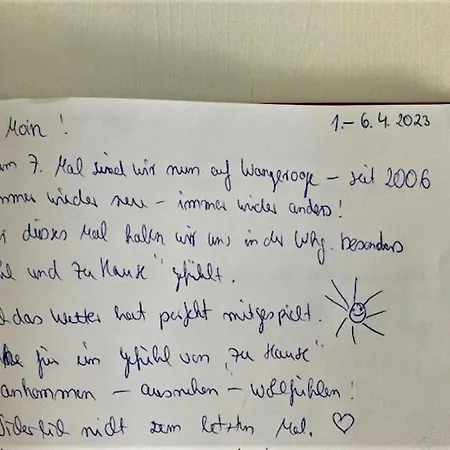 Moin! 1.–6.4.2023
um 7. Mal sind wir nun auf Wangerooge – seit 2006
mmer wieder neu – immer wieder anders!
dieses Mal haben wir uns in der Whg. besonders
hl und Zu Hause" gefühlt.
das Wetter hat perfekt mitgespielt.
für ein Gefühl von "Zu Hause"
ankommen – ausruhen – wohlfühlen!
nicht zum letzten Mal. ♡